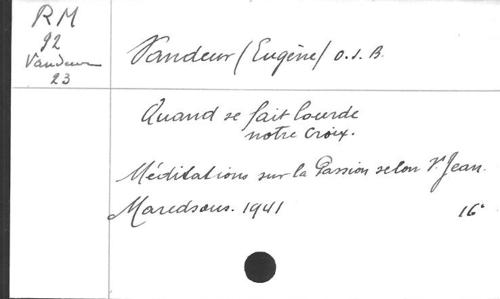 RM
92
Vandeur
23
Vandeur (Eugène) O.S.B.
Quand se fait lourde
notre croix.
Méditations sur la Passion selon St Jean.
Maredsous. 1941 16°